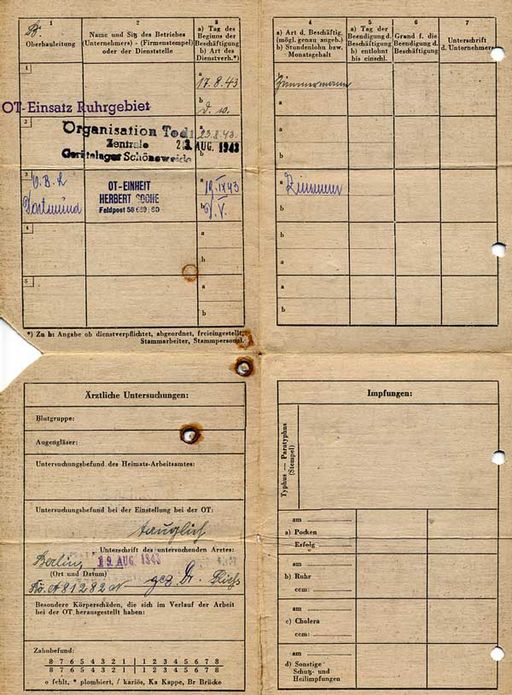 1
Oberbauleitung
2
Name und Sitz des Betriebes
(Unternehmers) - (Firmenstempel)
oder der Dienststelle
3
a) Tag des
Beginns der
Beschäftigung
b) Art des
Dienstverh.*)
1
a
17.8.43
b
OT-Einsatz Ruhrgebiet
2
Organisation Todt
Zentrale
Gerätelager Schöneweide
AUG. 1943
3
O.B.L
Dortmund
OT-EINHEIT
HERBERT
Feldpost
a
19.IX43
b
4
a
b
5
a
b
*) Zu b: Angabe ob dienstverpflichtet, abgeordnet, freieingestellt,
Stammarbeiter, Stammpersonal.
4
a) Art d. Beschäftig.
(mögl. genau angeb.)
b) Stundenlohn bzw.
Monatsgehalt
5
a) Tag der
Beendigung d.
Beschäftigung
b) entlohnt
bis einschl.
6
Grund f. die
Beendigung d.
Beschäftigung
7
Unterschrift
d. Unternehmers
Zimmermann
a
b
a
b
a
b
a
b
Ärztliche Untersuchungen:
Blutgruppe:
Augengläser:
Untersuchungsbefund des Heimats-Arbeitsamtes:
Untersuchungsbefund bei der Einstellung bei der OT:
tauglich
Unterschrift des untersuchenden Arztes:
Berlin
19. AUG. 1943
(Ort und Datum)
gez. Dr.
Besondere Körperschäden, die sich im Verlauf der Arbeit
bei der OT herausgestellt haben:
Zahnbefund:
8 7 6 5 4 3 2 1 1 2 3 4 5 6 7 8
8 7 6 5 4 3 2 1 1 2 3 4 5 6 7 8
o fehlt, * plombiert, / kariös, Ka Kappe, Br Brücke
Impfungen:
Typhus — Paratyphus
(Stempel)
am
a) Pocken
Erfolg
am
b) Ruhr
ccm:
am
c) Cholera
ccm:
am
d) Sonstige
Schutz- und
Heilimpfungen